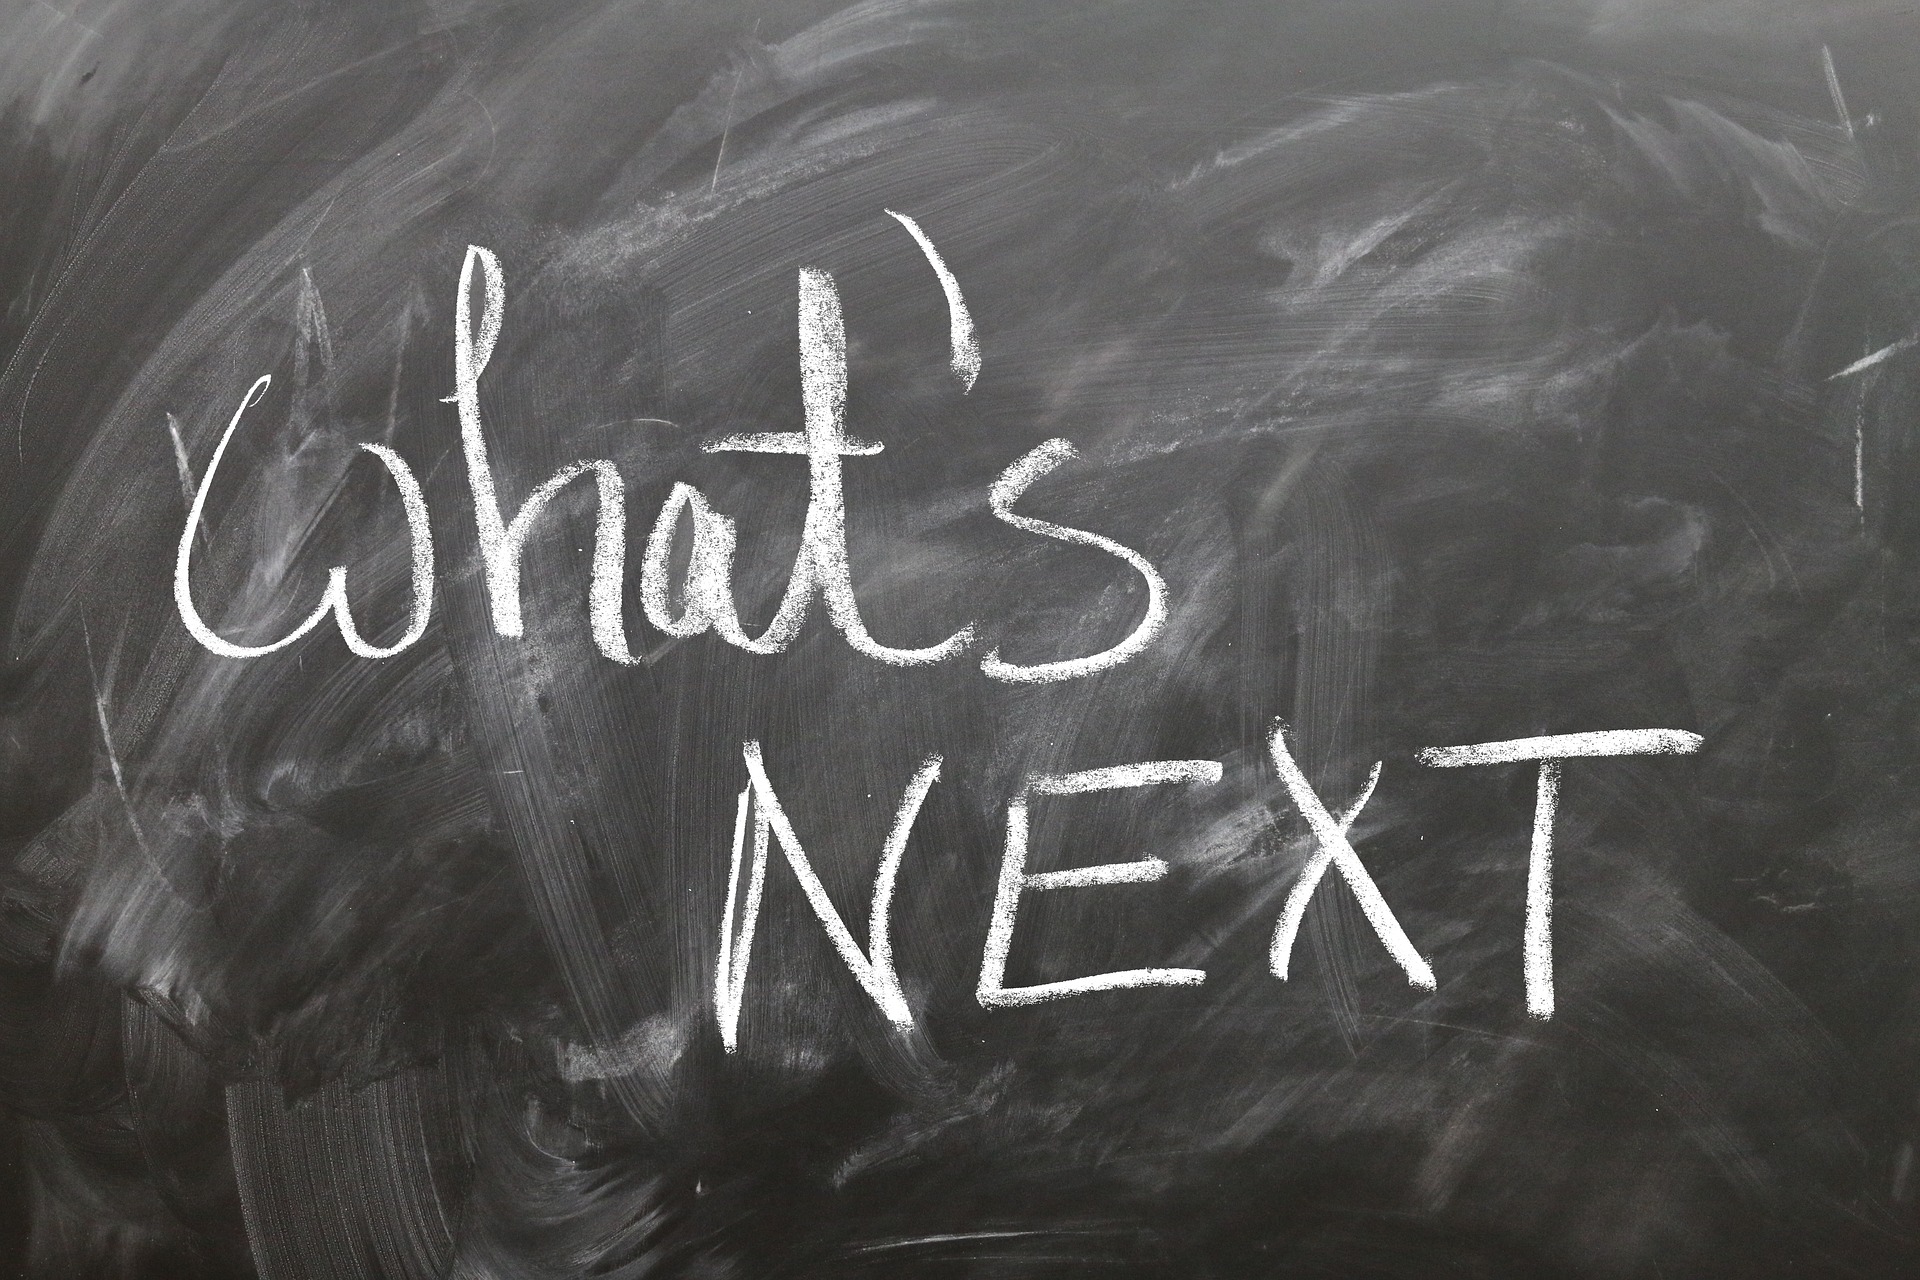 What's
NEXT